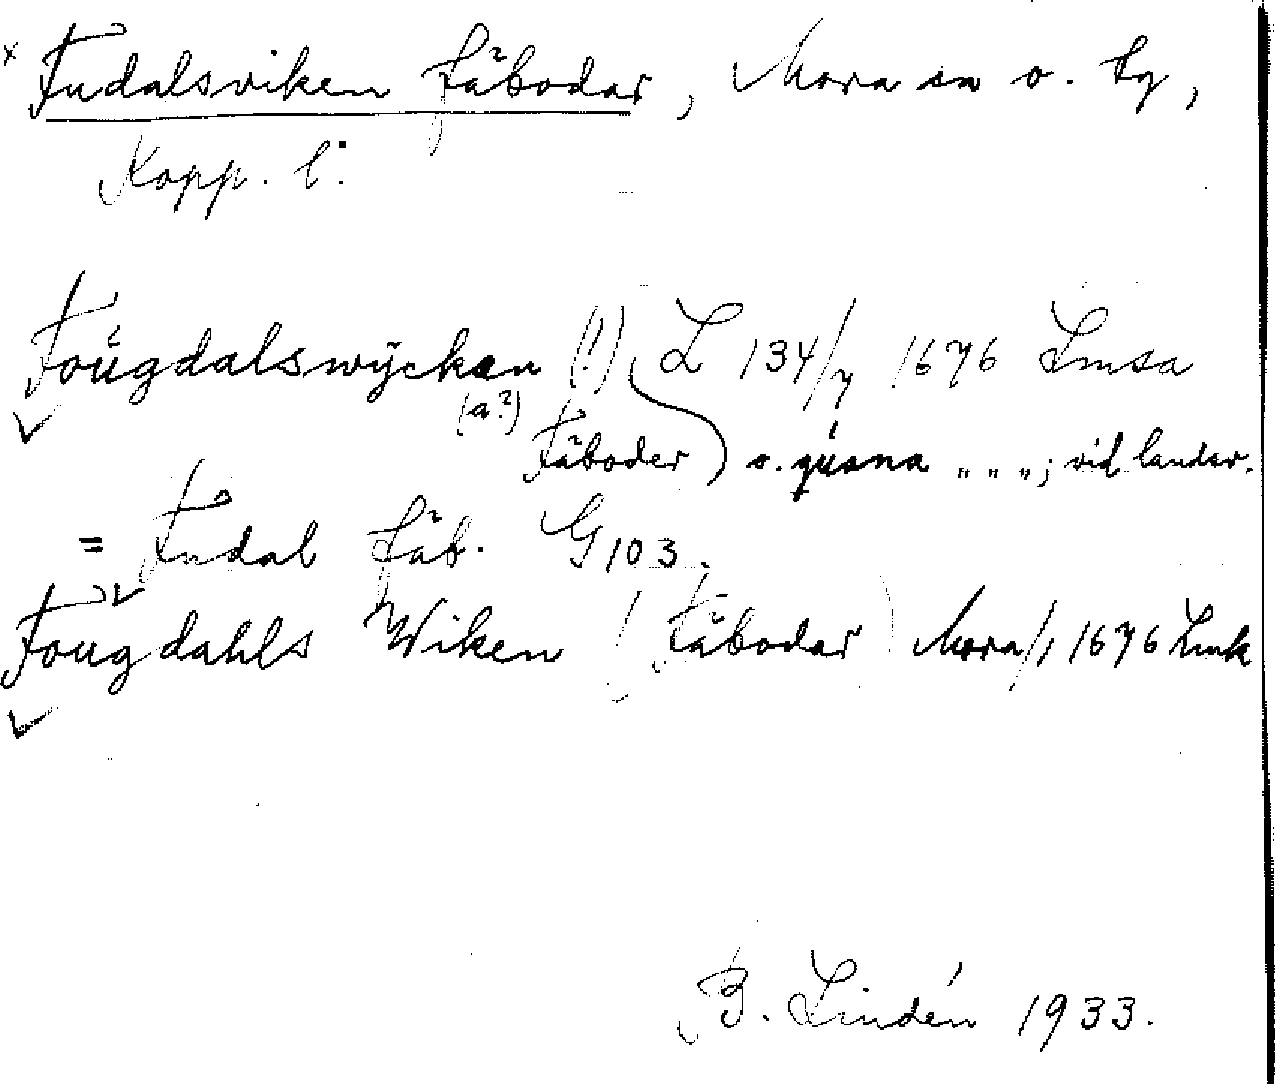 x Fudalsviken fäbodar, Mora sn o. by,
Kopp. l:
Foŭgdalswÿcken (!) L 134/7 1676 Lmsa
(a?)
Fäboder) o. qŭarna „ „ „; vid landsv.
= Fudal fäb. G103.
Fougdahls Wiken (Fäbodar) Mora/1 1676 Lmk
B. Lindén 1933.